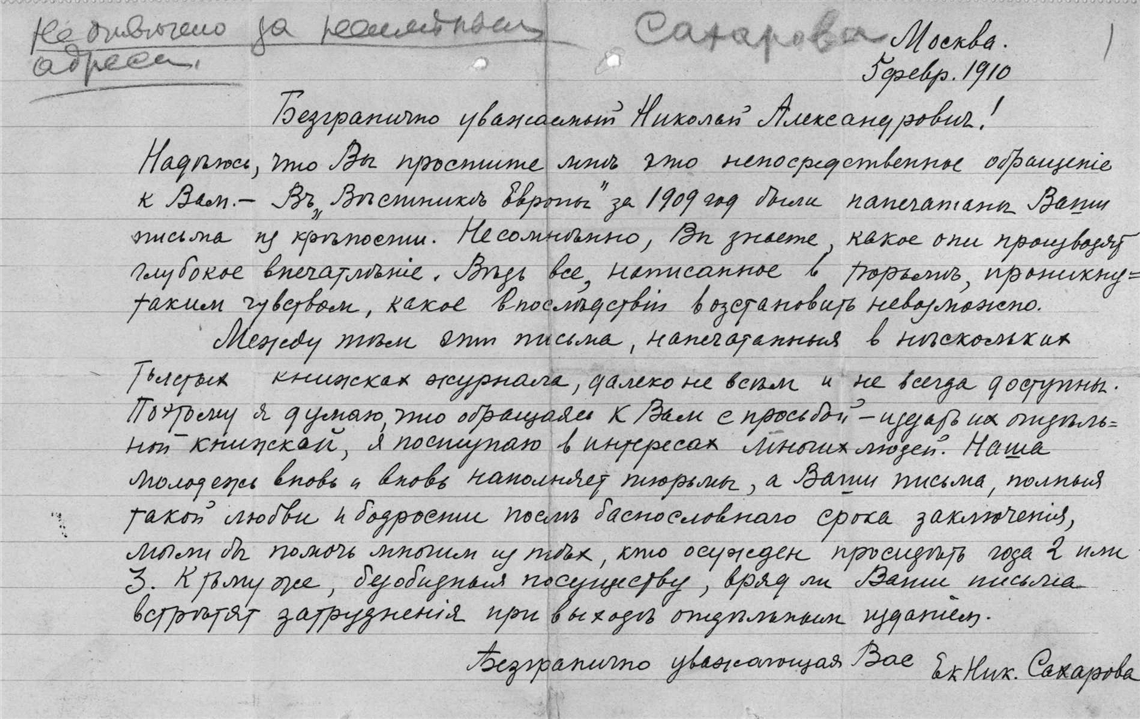 Не отвечено за неимением Сахарова
адреса.
Москва.
5 февр. 1910
Безгранично уважаемый Николай Александрович!
Надѣюсь, что Вы простите мнѣ это непосредственное обращеніе
к Вам. – Въ „Вѣстникѣ Европы" за 1909 год были напечатаны Ваши
письма из крѣпости. Несомнѣнно, Вы знаете, какое они производят
глубокое впечатлѣніе. Вѣдь все, написанное в тюрьмѣ, проникну=
таким чувством, какое впослѣдствіи возстановить невозможно.
Между тѣм эти письма, напечатанныя в нѣскольких
толстых книжках журнала, далеко не всѣм и не всегда доступны.
Поэтому я думаю, что обращаясь к Вам с просьбой – издать их отдѣль=
ной книжкой, я поступаю в интересах многих людей. Наша
молодежь вновь и вновь наполняет тюрьмы, а Ваши письма, полныя
такой любви и бодрости послѣ баснословнаго срока заключенія,
могли бы помочь многим из тѣх, кто осужден просидѣть года 2 или
3. К тому же, безобидныя по существу, вряд ли Ваши письма
встрѣтят затрудненія при выходѣ отдѣльным изданіем.
Безгранично уважающая Вас Ек Ник. Сахарова